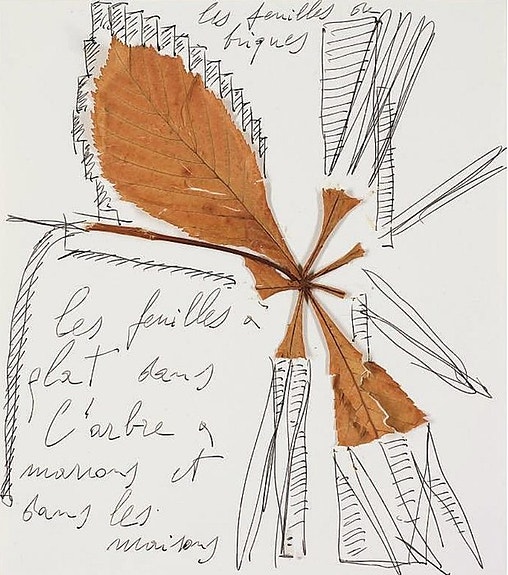 les feuilles ou
briques
les feuilles à
plat dans
l'arbre à
marrons et
dans les
maisons